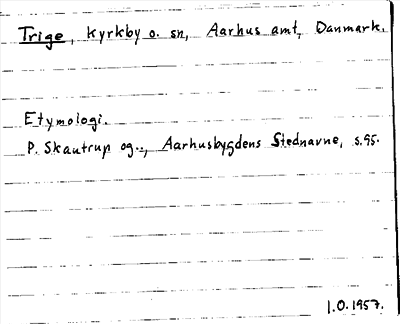 Trige, kyrkby o. sn, Aarhus amt, Danmark.
Etymologi.
P. Skautrup og.., Aarhusbygdens Stednavne, s.95.
1.0.1957.